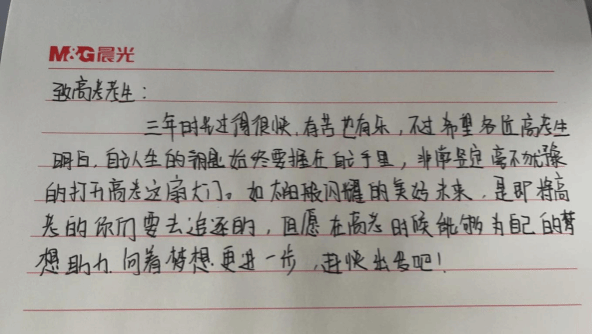 M&G晨光
致高考考生：
三年时光过得很快，有苦也有乐，不过希望各位高考生
明白，自己人生的钥匙始终要握在自己手里，非常坚定毫不犹豫
的打开高考这扇大门。如太阳般闪耀的美好未来，是即将高
考的你们要去追逐的，但愿在高考时候能够为自己的梦
想助力，向着梦想更进一步，赶快出发吧！